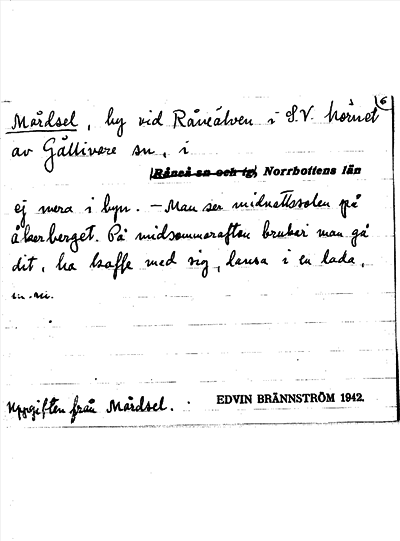 6
Mårdsel, by vid Råneälven i S.V. hörnet
av Gällivare sn, i
(Råneå sn och tg) Norrbottens län
ej mera i byn. – Man ser midnattssolen på
åkerberget. På midsommarafton brukar man gå
dit, ha kaffe med sig, dansa i en lada,
m.m.
Uppgiften från Mårdsel.
EDVIN BRÄNNSTRÖM 1942.